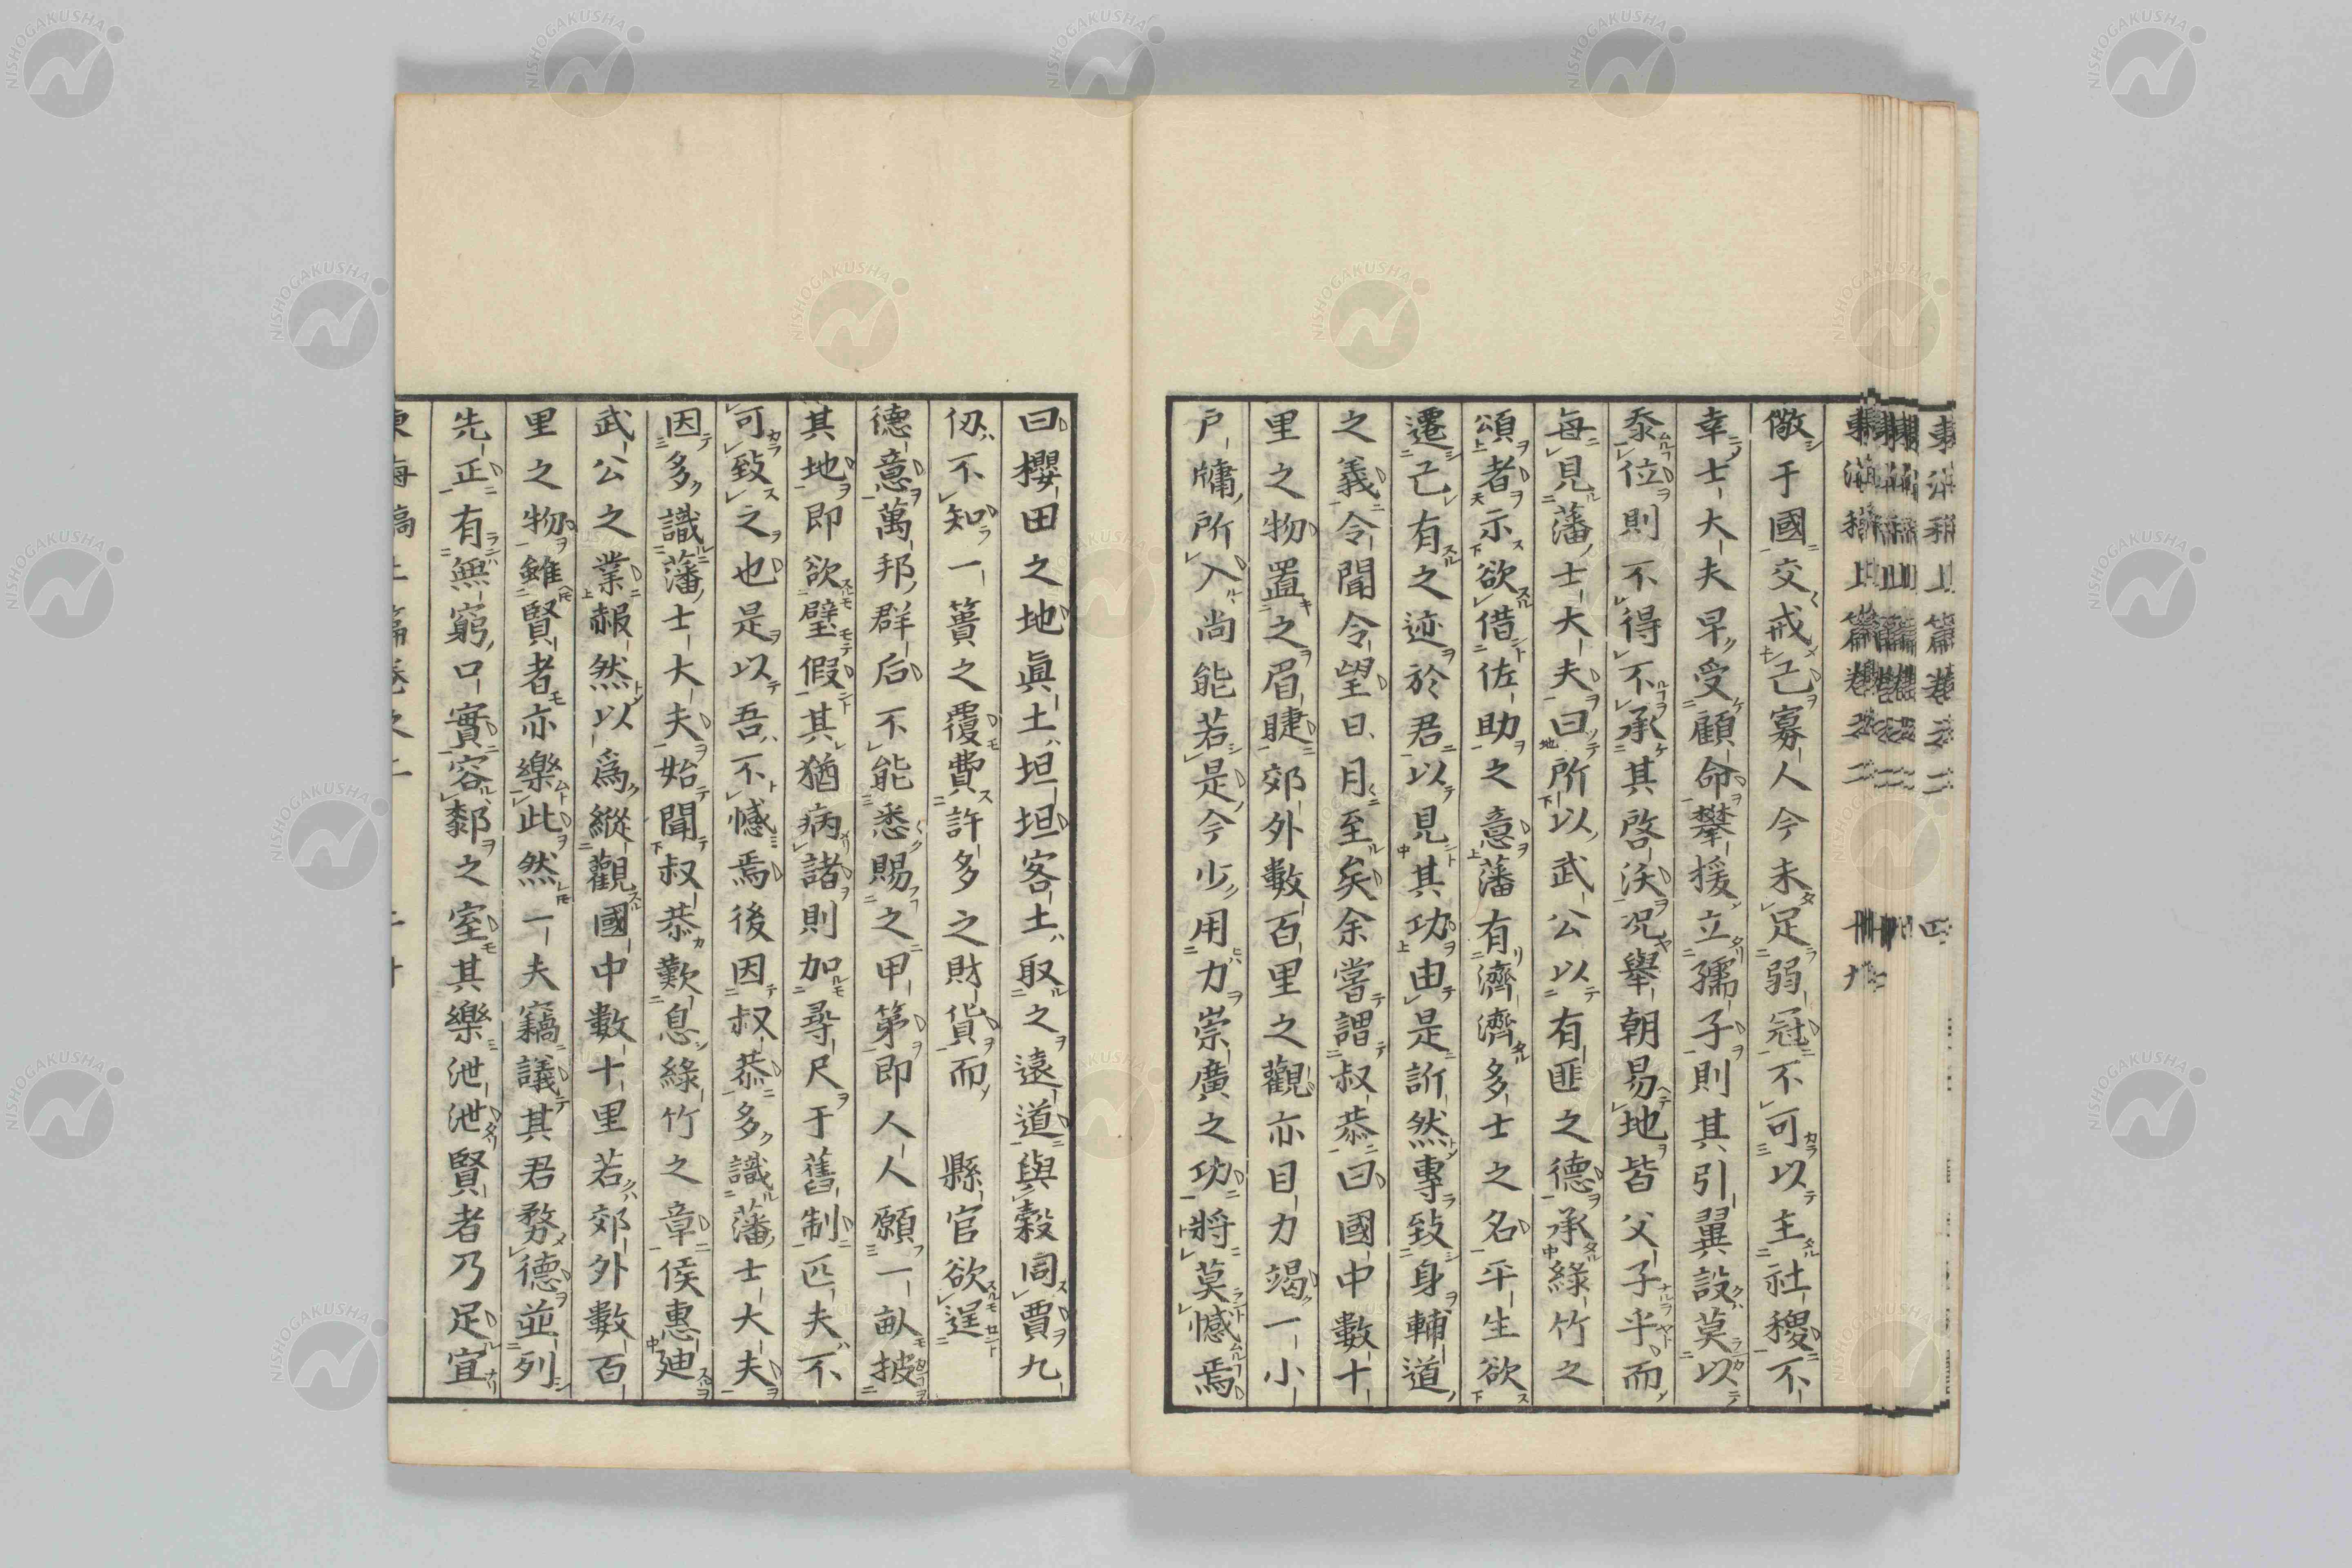 儆于國交戒己寡人今未足弱冠不可以主社稷不
幸士大夫早受顧命攀援立孺子則其引翼設莫以
忝位則不得不承其啓沃况舉朝易地皆父子乎而
每見藩士大夫曰所以武公以有匪之德承綠竹之
頌者示欲借佐助之意藩有濟濟多士之名平生欲
遷己有之迹於君以見其功由是訢然專致身輔道
之義令聞令望日月至矣余嘗謂叔恭曰國中數十
里之物置之眉睫郊外數百里之觀亦目力竭一小
戶牖所入尚能若是今少用力崇廣之功將莫憾焉
曰櫻田之地眞土坦坦客土取之遠道與穀同賈九
仭不知一簣之覆費許多之財貨而 縣官欲逞
德意萬邦群后不能悉賜之甲第即人人願一畝披
其地即欲璧假其猶病諸則加尋尺于舊制匹夫不
可致之也是以吾不憾焉後因叔恭多識藩士大夫
因多識藩士大夫始聞叔恭歎息綠竹之章侯惠廸
武公之業赧然以爲縱觀國中數十里若郊外數百
里之物雖賢者亦樂此然一夫竊議其君務德並列
先正有無窮口實容鄰之室其樂泄泄賢者乃足宜
NISHOGAKUSHA